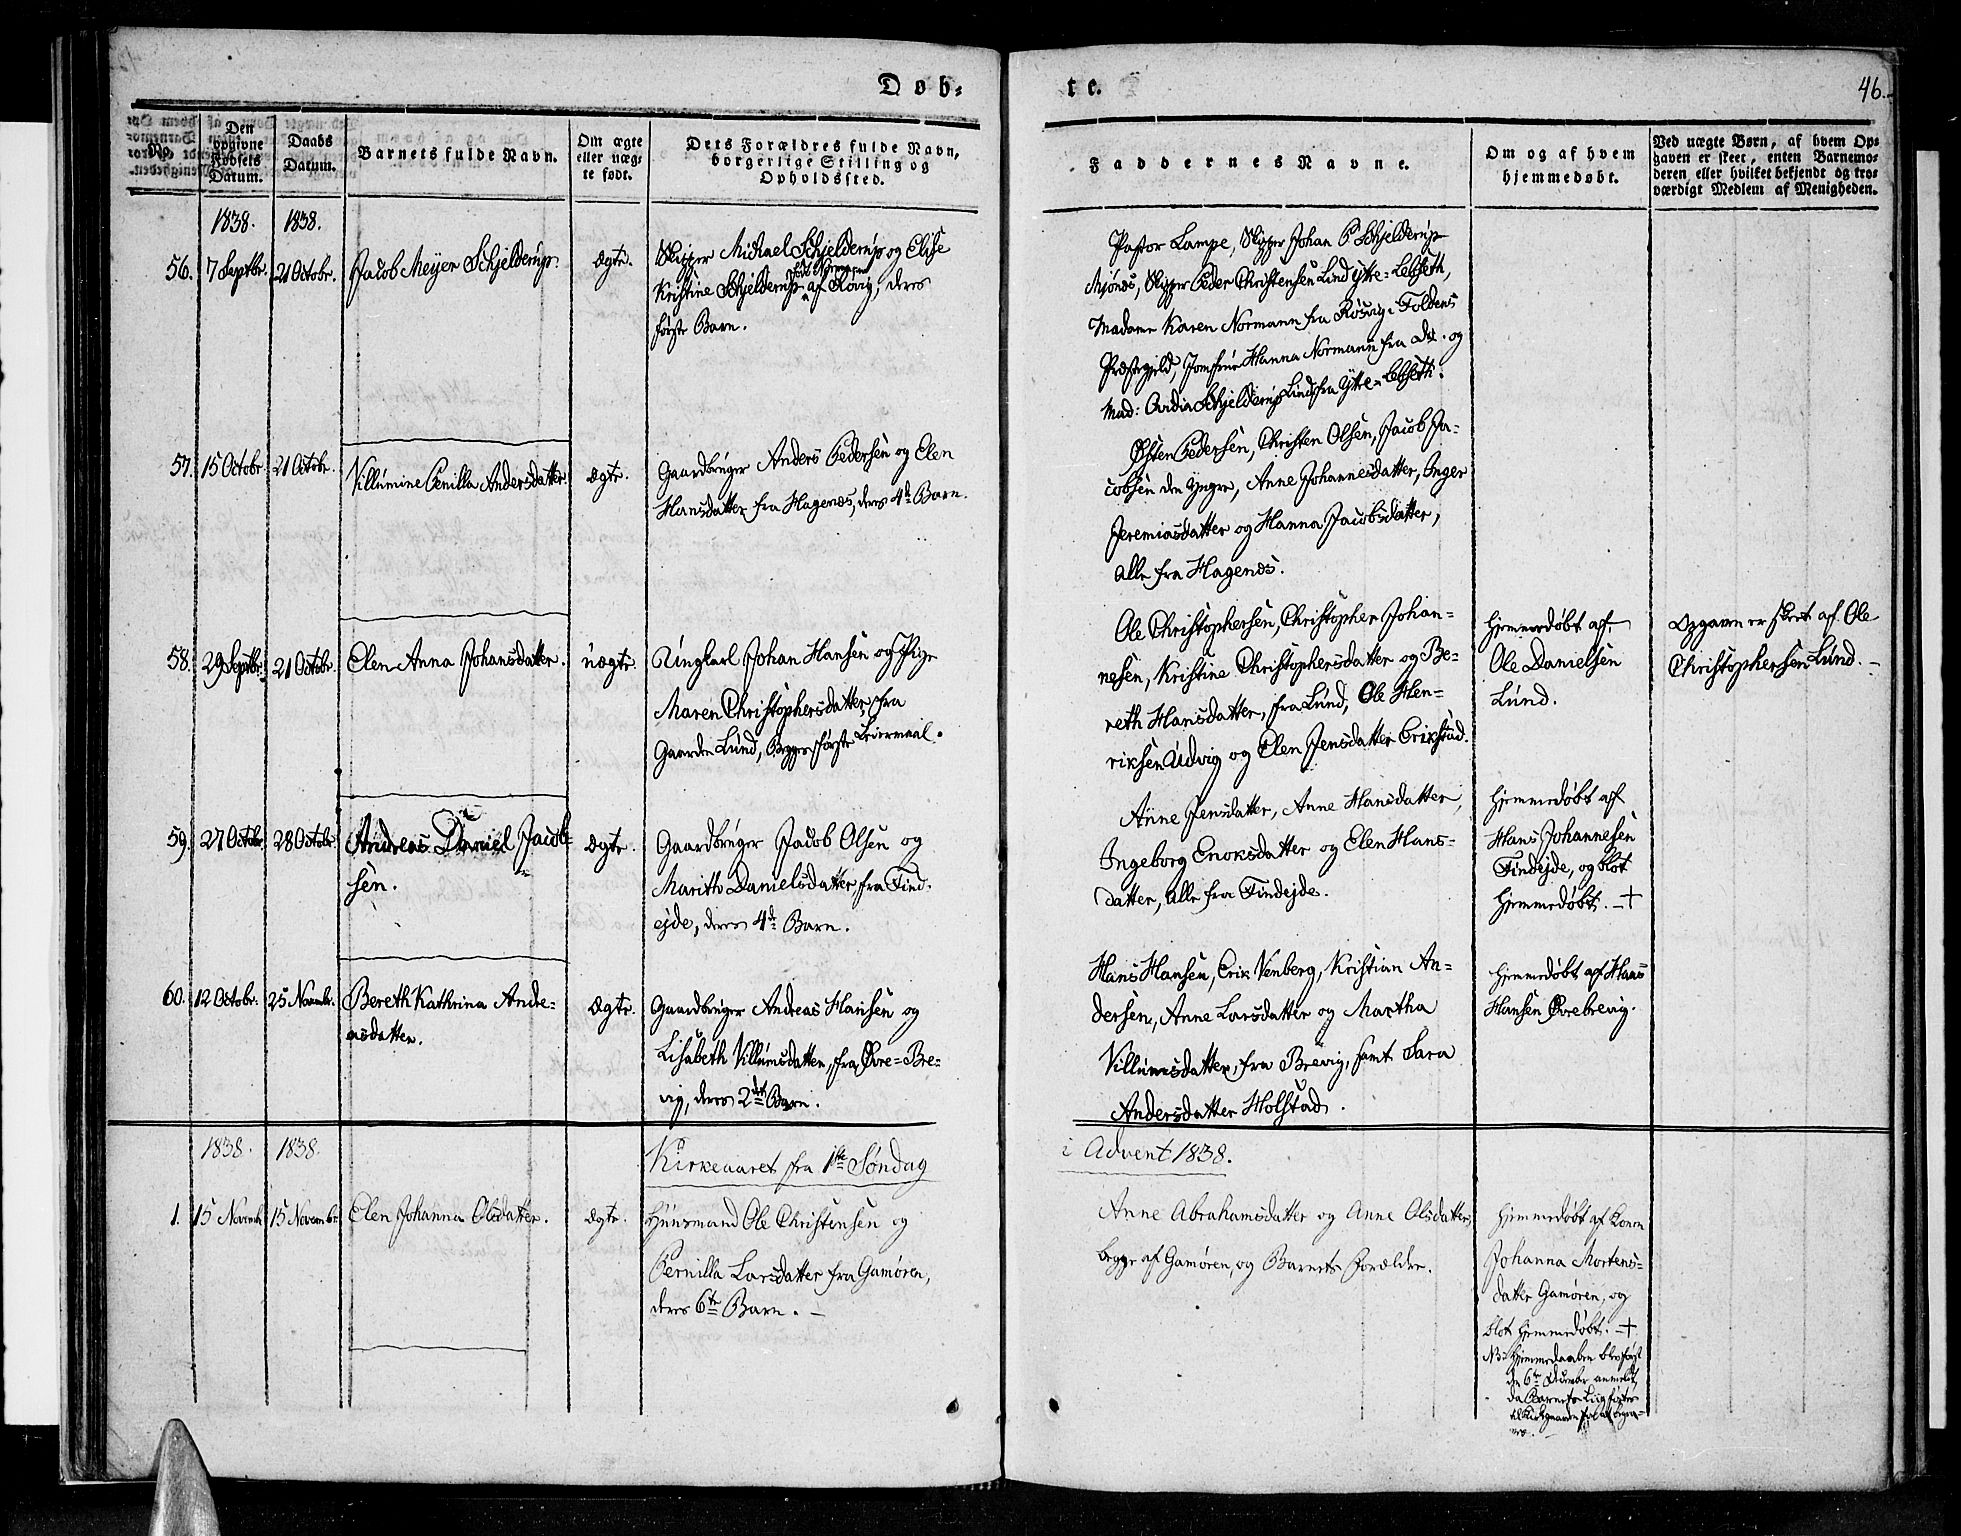 Døb-
te.
46.
No.
Den
opgivne
Fødsels
Datum.
Daabs
Datum.
Barnets fulde Navn.
Om ægte
eller uæg-
te født.
Dets Forældres fulde Navn,
borgerlige Stilling og
Opholdssted.
Faddernes Navne.
Om og af hvem
hjemmedøbt.
Ved uægte Børn, af hvem Op-
gaven er skeet, enten Barnemo-
deren eller hvilket bekjendt og tro-
værdigt Medlem af Menigheden.
1838. 1838.
56. 7 Septbr. 21 Octobr. Jacob Meyer Schjelderup. Ægte.
Skipper Michael Schjelderup og Elise
Kristine Schjelderup fød Normann af Røvig, deres
første Barn.
Pastor Lampe, Skipper Johan P Schjelderup
Mjønes, Skipper Peder Christensen Lind Ytre-Lebseth,
Madame Karen Normann fra Røsvig i Foldens
Præstegjeld, Jomfrue Hanna Normann fra do. og
Mad: Ovidia Schjelderup Lind fra Ytre-Lebseth.
57. 15 Octobr. 21 Octobr. Villumine Penilla Andersdatter. Ægte.
Gaardbruger Anders Pedersen og Elen
Hansdatter fra Hagenæs, deres 4de Barn.
Østen Pedersen, Christen Olsen, Jacob Ja-
cobsen den Yngre, Anne Johannesdatter, Inger
Jeremiasdatter og Hanna Jacobsdatter,
alle fra Hagenæs.
58. 29 Septbr. 21 Octobr. Elen Anna Johansdatter. Uægte.
Ungkarl Johan Hansen og Pige
Maren Christophersdatter, fra
Gaarden Lund, Begges første Leiermaal.
Ole Christophersen, Christopher Johan-
nesen, Kristine Christophersdatter og Be-
reth Hansdatter, fra Lund, Ole Hen-
riksen Udvig og Elen Jensdatter Erikstad.
Hjemmedøbt af
Ole Danielsen
Lund.
Opgaven er skeet af Ole
Christophersen Lund. -
59. 27 Octobr. 28 Octobr. Andreas Daniel Jacob-
sen.
Ægte.
Gaardbruger Jacob Olsen og
Marith Danielsdatter fra Find-
ejde, deres 4de Barn.
Anne Jensdatter, Anne Hansdatter,
Ingeborg Enoksdatter og Elen Hans-
datter, alle fra Findejde.
Hjemmedøbt af
Hans Johannesen
Findejde, og blot
hjemmedøbt. - +
60. 12 Octobr. 25 Novembr. Bereth Kathrina Andre-
asdatter.
Ægte.
Gaardbruger Andreas Hansen og
Lisabeth Villumsdatter, fra Øvre-Bre-
vig, deres 2det Barn.
Hans Hansen, Erik Venberg, Kristian An-
dersen, Anne Larsdatter og Martha
Villumsdatter, fra Brevig, samt Sara
Andersdatter Holstad.
Hjemmedøbt af Hans
Hansen Øvrebrevig.
1838. 1838.
Kirkeaaret fra 1ste Søndag
i Advent 1838.
1. 15 Novembr. 15 Novembr. Elen Johanna Olsdatter. Ægte.
Huusmand Ole Christensen og
Pernilla Larsdatter fra Gamøren,
deres 6te Barn. -
Anne Abrahamsdatter og Anne Olsdatter,
begge af Gamøren, og Barnets Forældre.
Hjemmedøbt af Konen
Johanna Mortens-
datter Gamøren, og
blot hjemmedøbt. - +
NB: Hjemmedaaben blev først
den 6te December anmeldt,
da Barnets Liig førtes
til Kirkegaarden for at begra-
ves. -